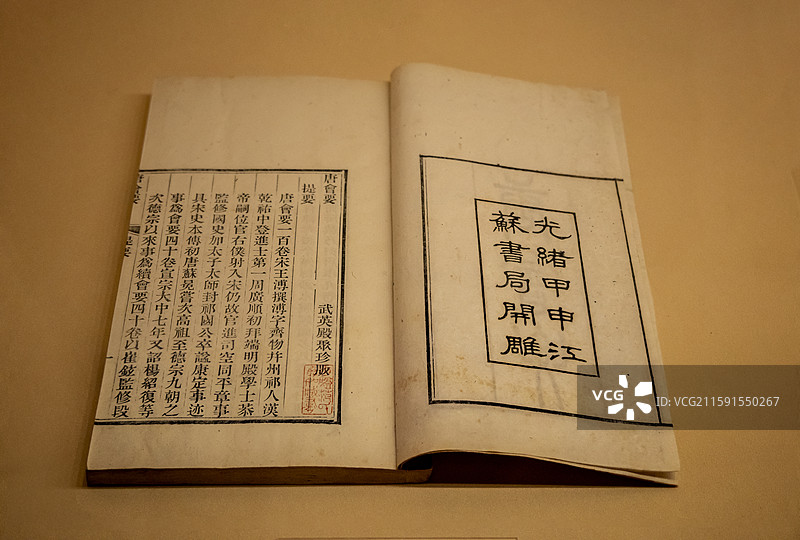 光緒甲申江
蘇書局開雕
唐會要
提要
武英殿聚珍版
唐會要一百卷宋王溥撰溥字齊物幷州祁人漢
乾祐中登進士第一周廣順初拜端明殿學士恭
帝嗣位官右僕射入宋仍故官進司空同平章事
監修國史加太子太師封祁國公卒諡康定事迹
具宋史本傳初唐蘇冕嘗次高祖至德宗九朝之
事爲會要四十卷宣宗大中七年又詔楊紹復等
次德宗以來事爲續會要四十卷以崔鉉監修段
唐會要
提要
視覺中國
VCG
VCG.COM
ID:VCG211591550267